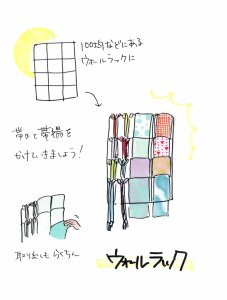 100均などにある
ウォールラックに
帯〆と帯揚を
かけていきましょう!
取り出しもらくちん
ウォールラック